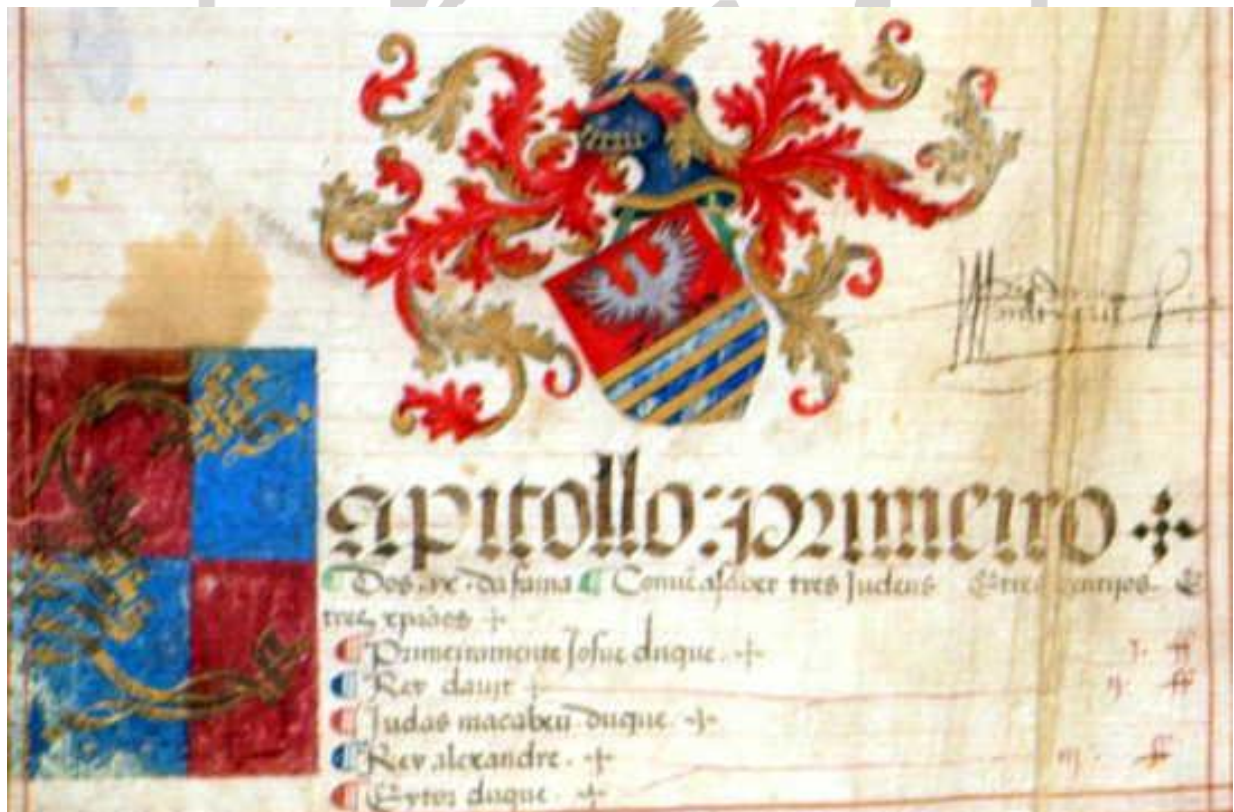 apitollo: primeiro
Dos .ix. da fama Conuẽ asaber tres Judeus E tres gentijos E
tres xpãos
Primeiramente Josue duque.
Rey dauit
Judas macabeu duque.
Rey alexandre.
duque.